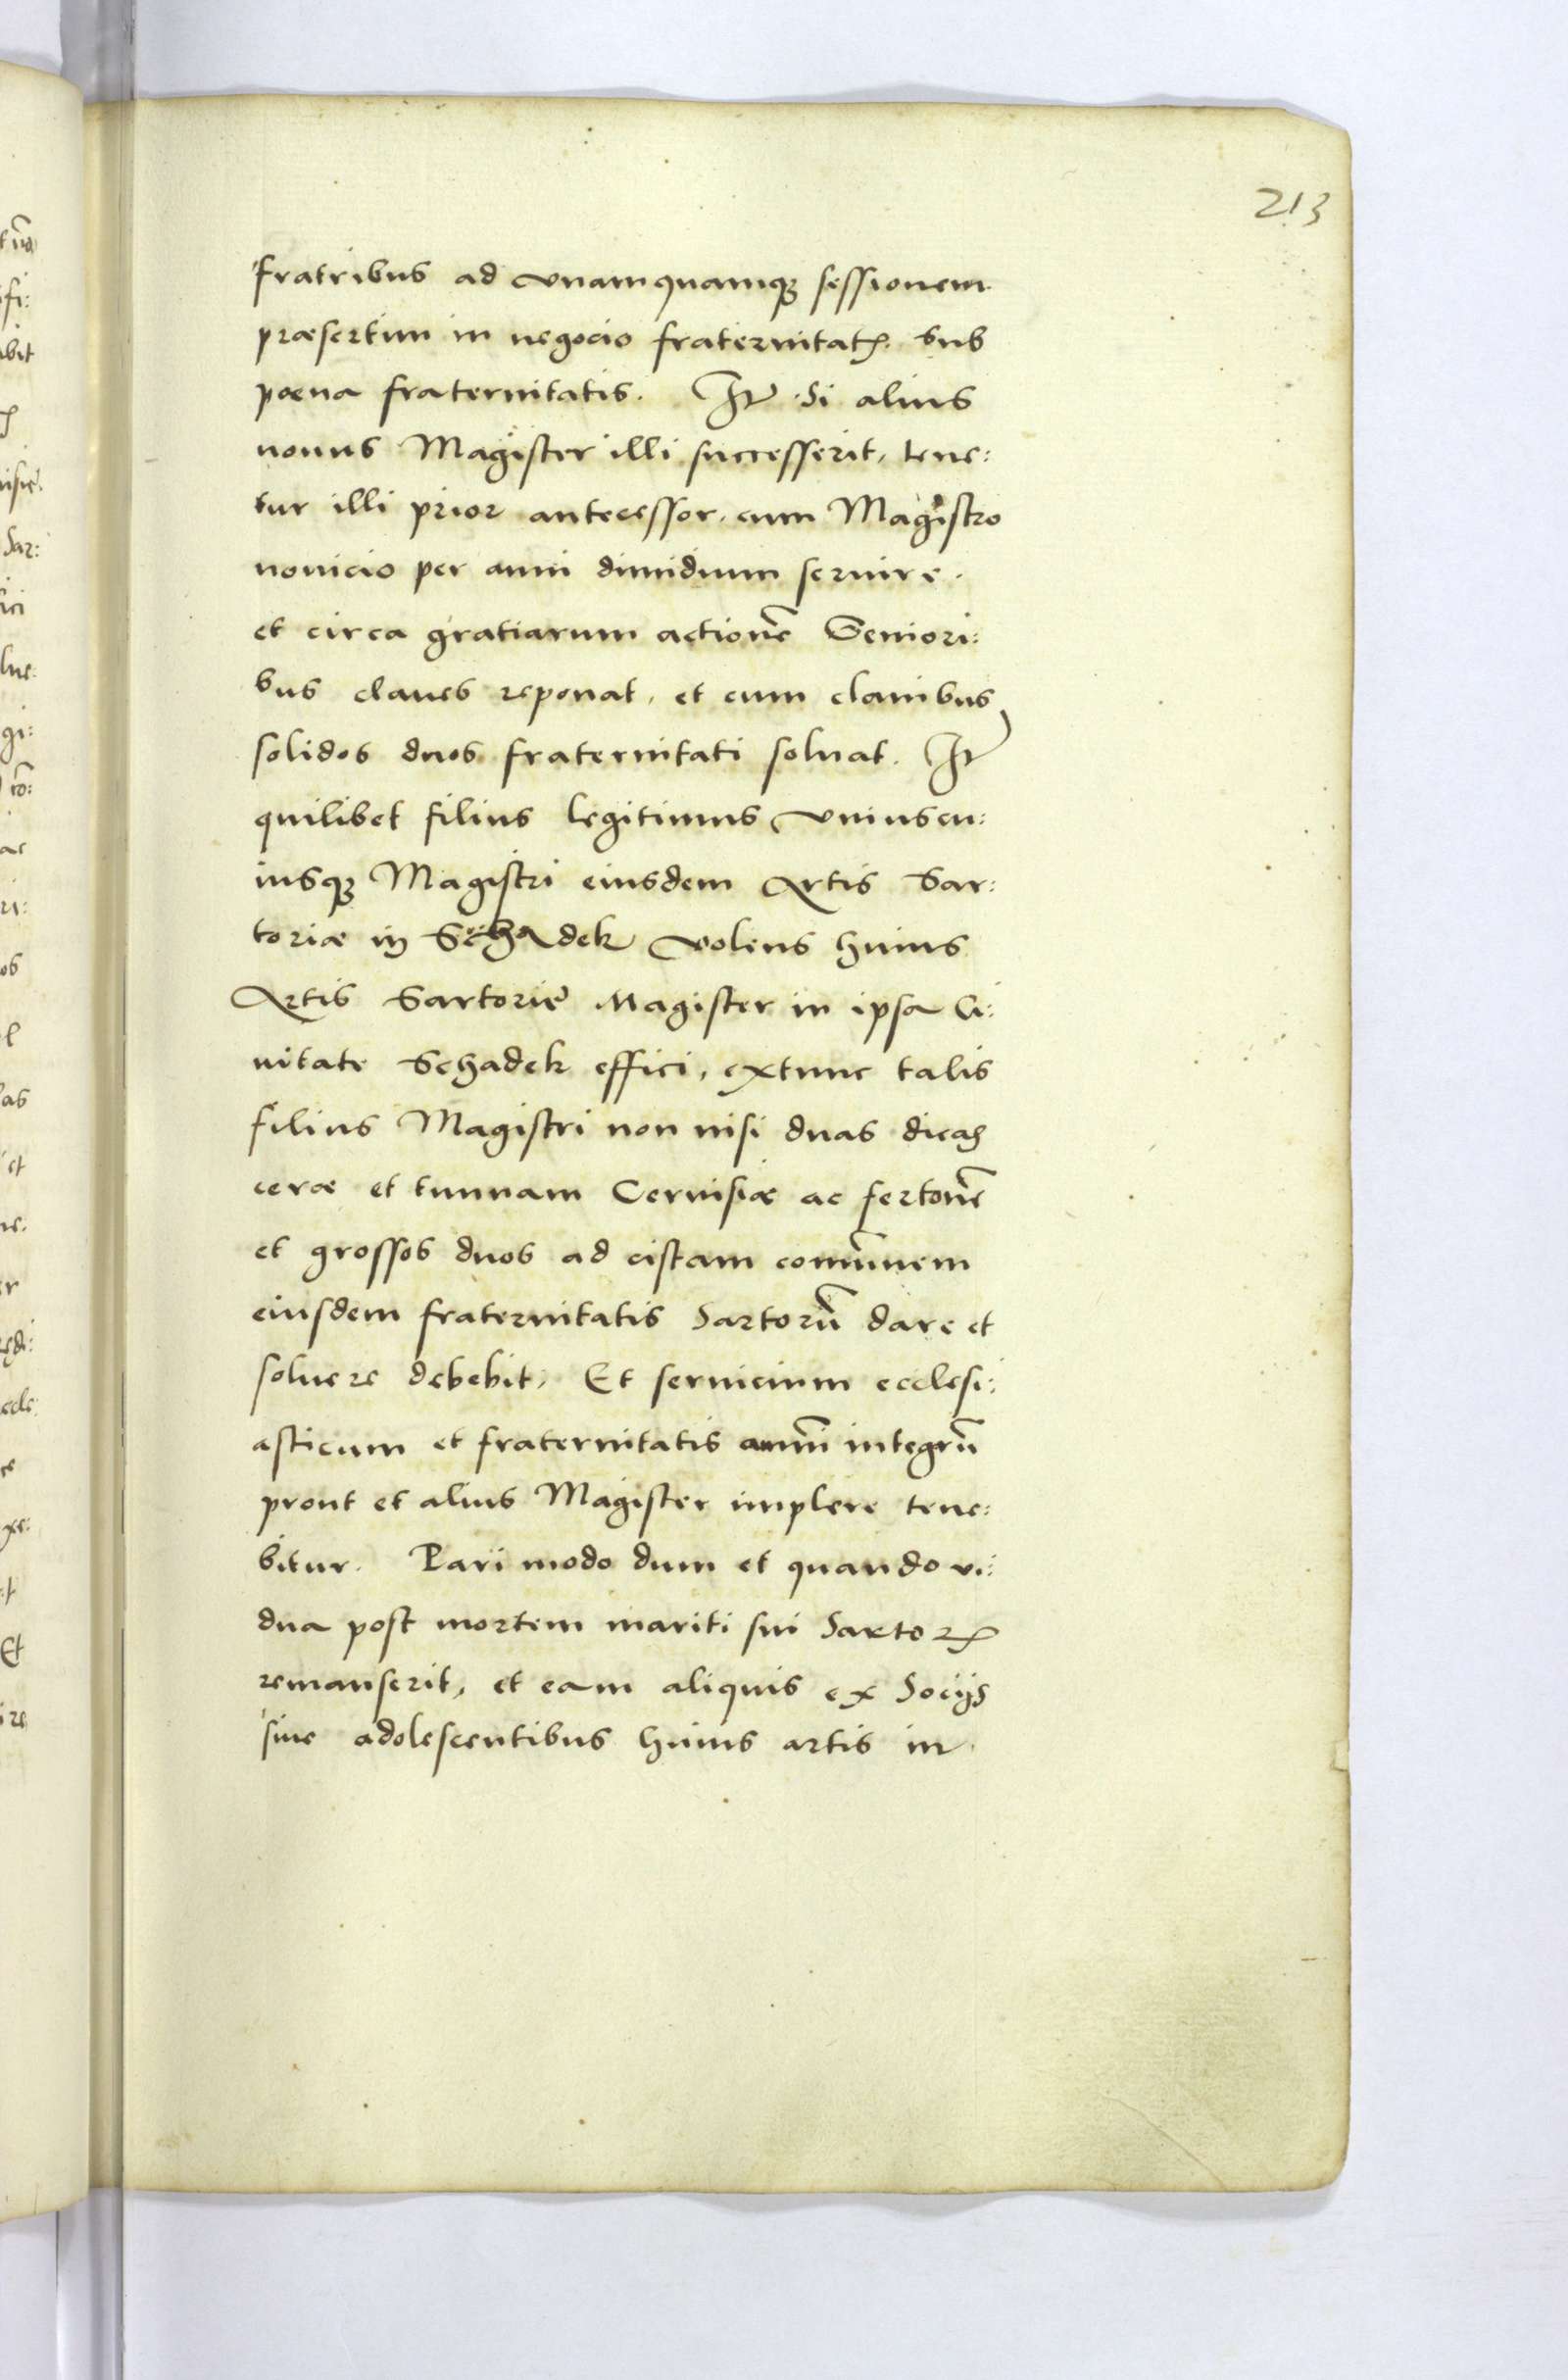 213
fratribus ad vnamquamq; sessionem
præsertim in negocio fraternitatꝭ. sub
pœna fraternitatis. Itē Si alius
nouus Magister illi successerit, tene:
tur illi prior antecessor, cum Magistro
nouicio per anni dimidium seruire.
et circa gratiarum actionē Seniori:
bus claues reponat, et cum clauibus
solidos duos fraternitati soluat. Itē
quilibet filius legitimus vniuscu:
iusq; Magistri eiusdem Artis Sar:
toriæ in Schadek volens huius
Artis Sartorie Magister in ipsa Ci:
uitate Schadek effici, extunc talis
filius Magistri non nisi duas dicas
ceræ et tunnam Ceruisiæ ac fertonē
et grossos duos ad cistam comūnem
eiusdem fraternitatis Sartorū dare et
soluere debebit, Et seruicium ecclesi:
asticum et fraternitatis anni integrū
prout et alius Magister implere tene:
bitur. Pari modo dum et quando vi:
dua post mortem mariti sui Sartorꝭ
remanserit, et eam aliquis ex Socijs
siue adolescentibus huius artis in